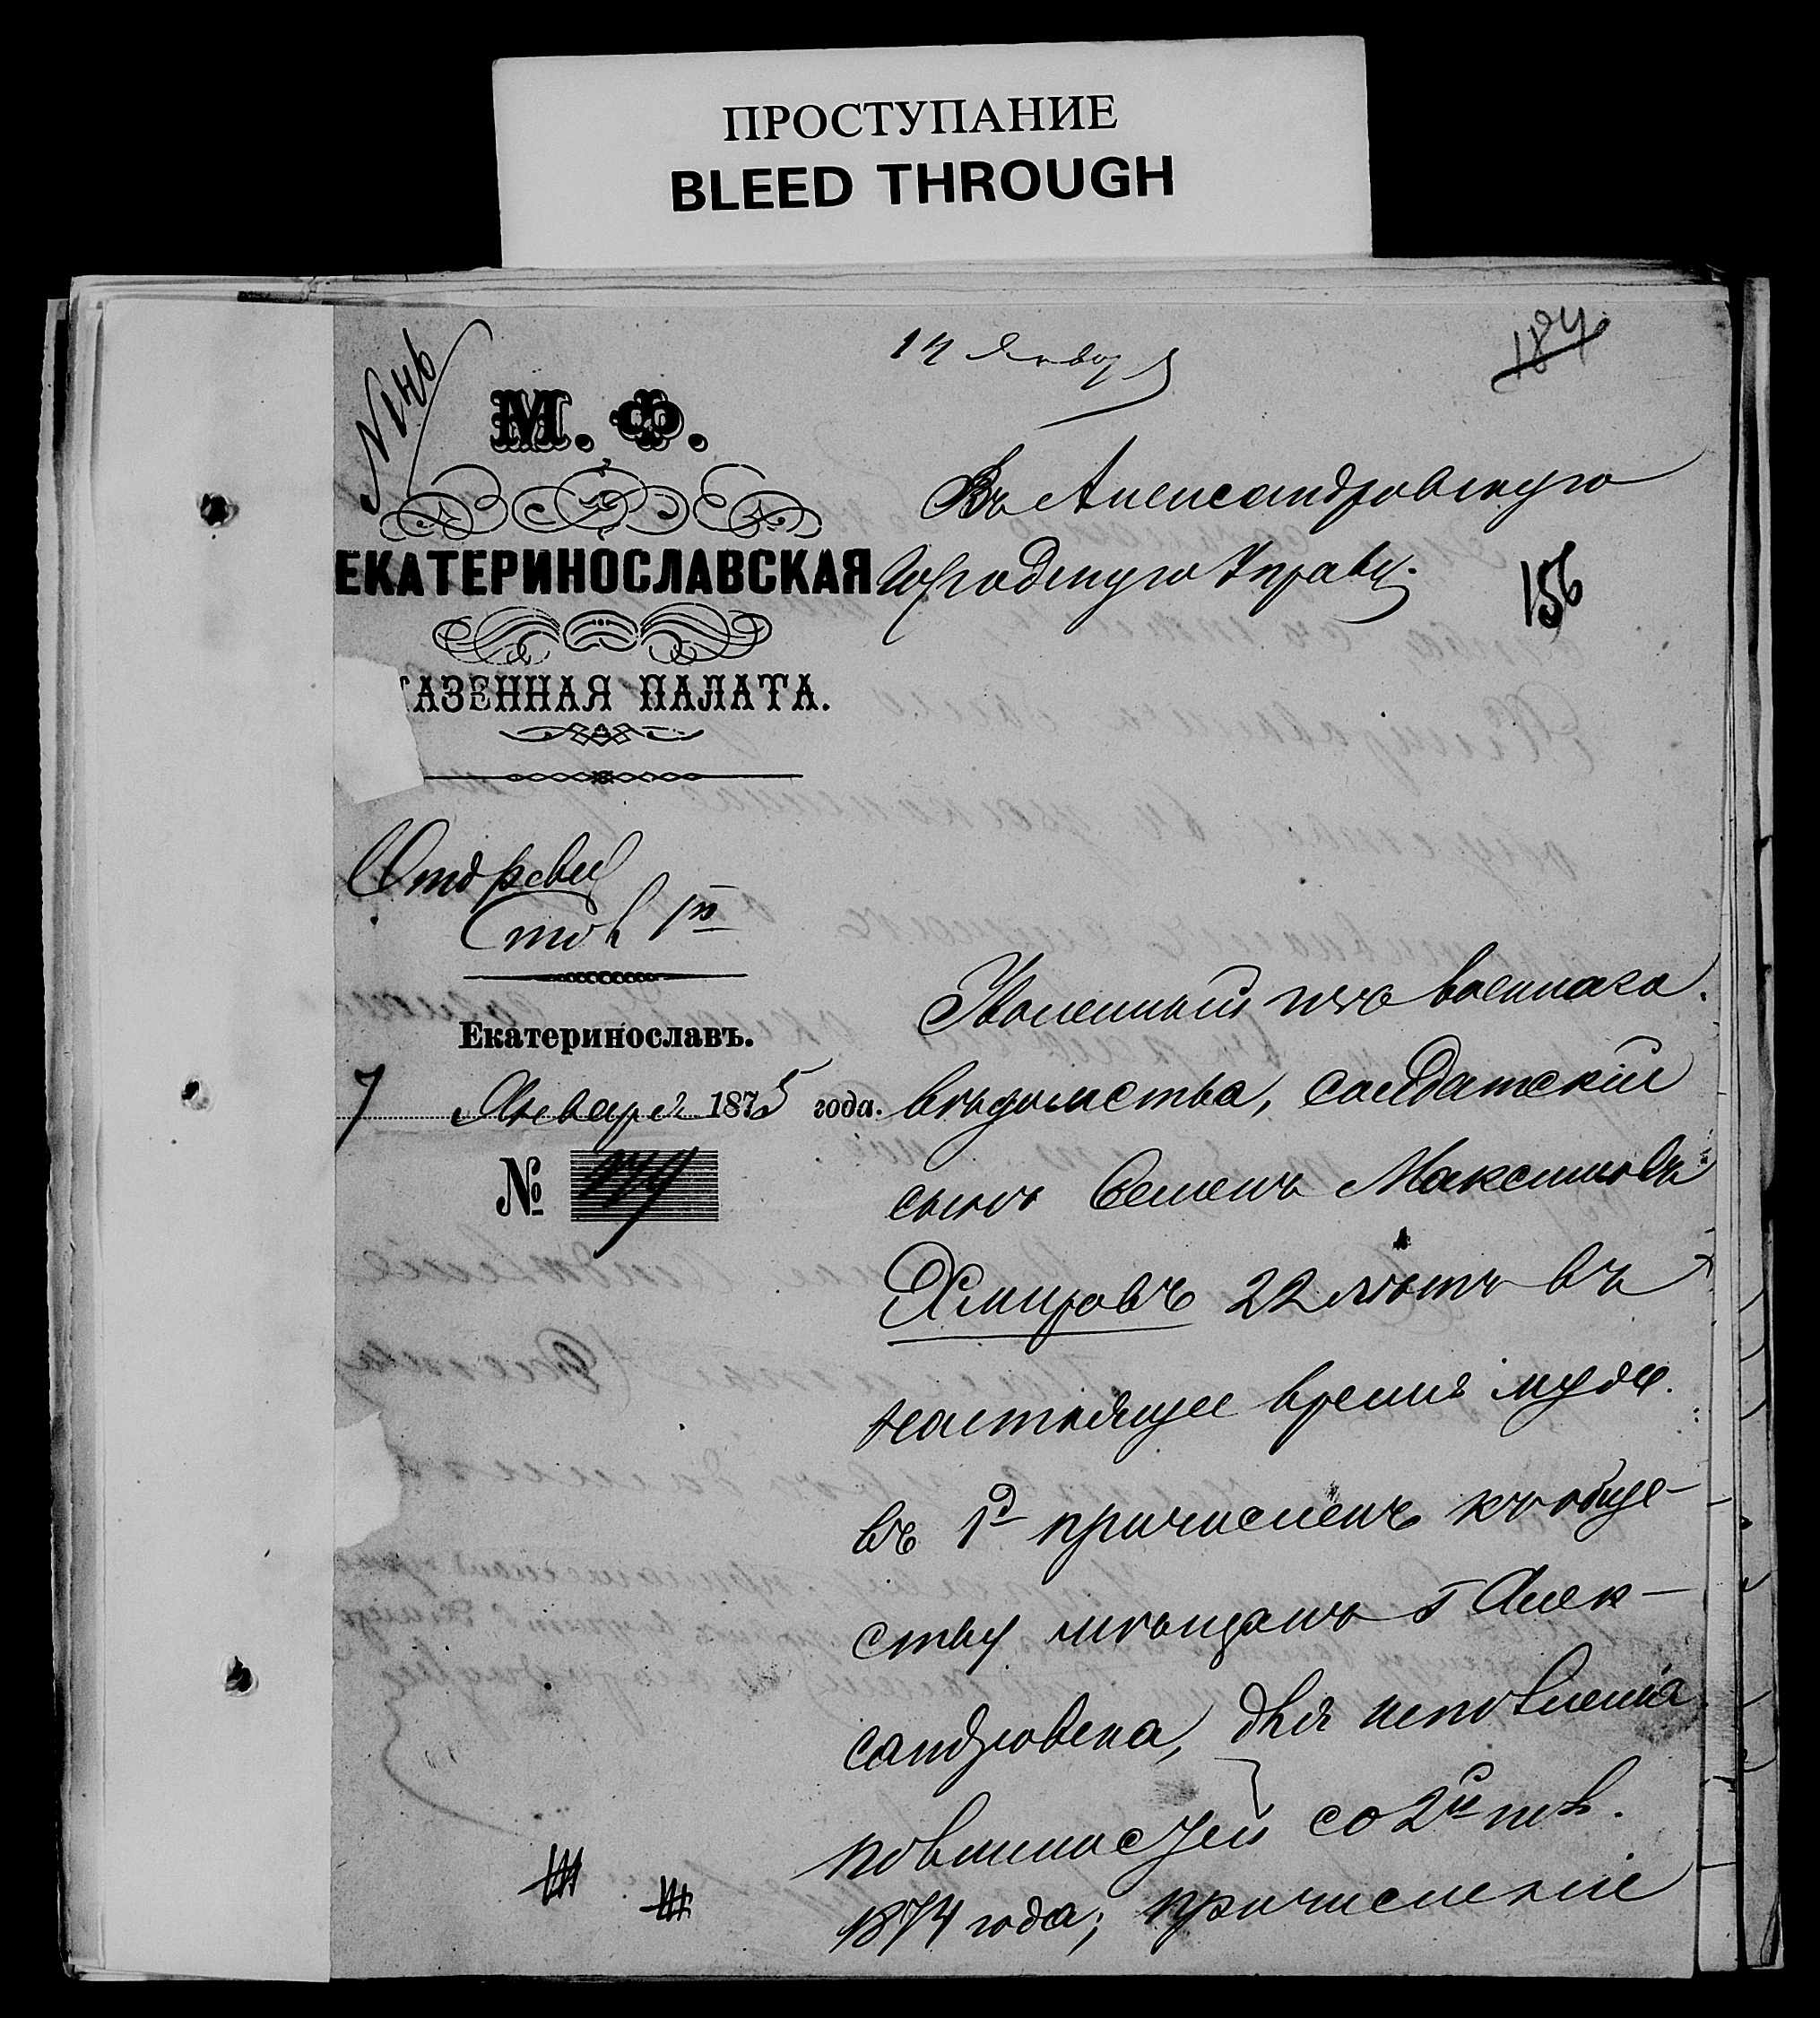 ПРОСТУПАНИЕ
BLEED THROUGH
N 146
14 Января
184
М. Ф.
ЕКАТЕРИНОСЛАВСКАЯ
КАЗЕННАЯ ПАЛАТА.
Въ Александровскую
Городскую Управу.
156
Отд Ревиз
Столъ 1й
Екатеринославъ.
7 Января 1875 года.
№
Уволенный изъ военнаго
вѣдомства, солдатскій
сынъ Семенъ Максимовъ
Хмировъ 22 лѣтъ въ
настоящее время муж.
въ 1д причисленъ къ обще-
ству мѣщанъ г Алек-
сандровска, для исполненія
повинностей со 2й пол.
1874 года; причисленіе